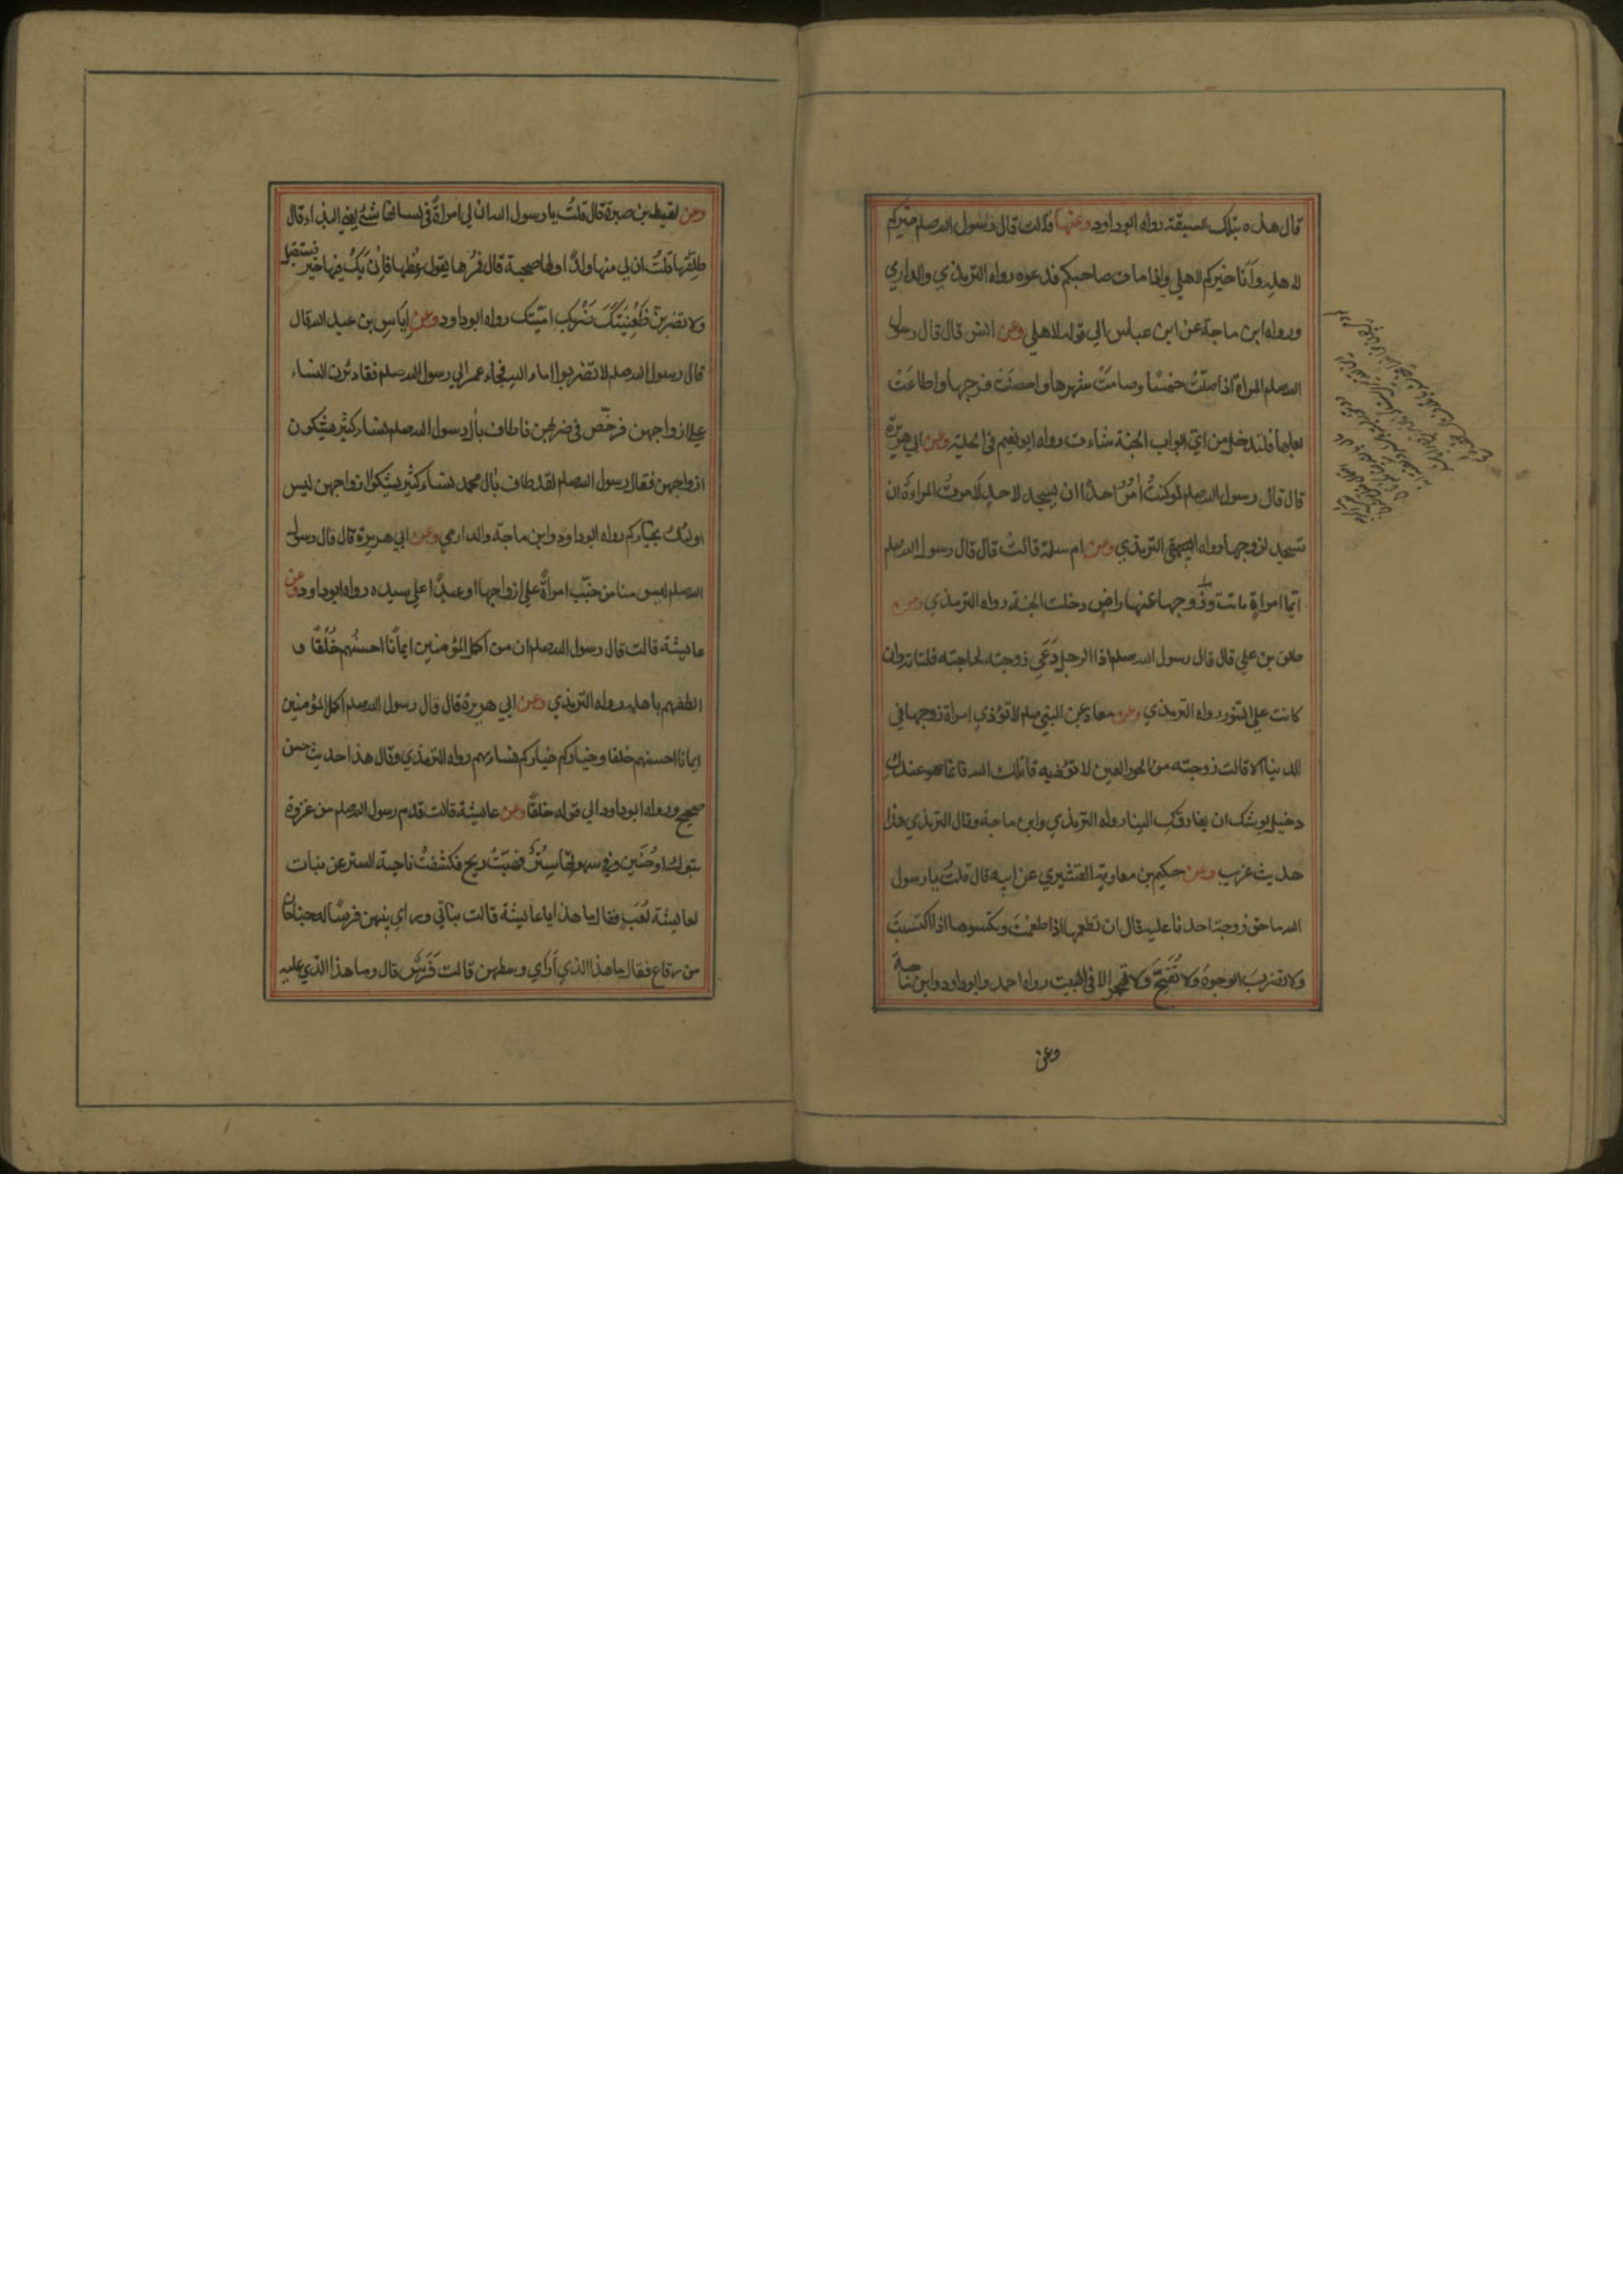 قال هذه بتلك السبقة رواه ابوداود وعنها قالت قال رسول الله صلعم خيركم خيركم
لاهله وانا خيركم لاهلي واذا مات صاحبكم فدعوه رواه الترمذي والدارمي
ورواه ابن ماجة عن ابن عباس الي قوله لاهلي وعن انس قال قال رسول
الله صلعم المراة اذا صلّتْ خمسًا وصامتْ شهرها واحصنتْ فرجها واطاعَتْ
بعلها فلتدخل من ايّ ابواب الجنة شاءت رواه ابو نعيم في الحلية وعن ابي هريرة
قال قال رسول الله صلعم لو كنتُ اٰمُرُ احدًا ان يسجد لاحدٍ لامرتُ المراءة ان
تسجد لزوجها رواه الترمذي وعن ام سلمة قالتْ قال قال رسول الله صلعم
ايّما امراةٍ ماتت وزوجها عنها راضٍ دخلت الجنة رواه الترمذي وعن
طلق بن علي قال قال رسول الله صلعم اذا الرجل دَعَي زوجته لحاجته فلتاته وان
كانت علي التنور رواه الترمذي وعن معاذ عن النبي صلعم لا تؤذي امراة زوجها في
الدنيا الا قالت زوجته من الحور العين لا تؤذيه قاتلك الله فانما هو عندكِ
دخيل يوشك ان يفارقكِ الينا رواه الترمذي وابن ماجة وقال الترمذي هذا
حديث غريب وعن حكيم بن معاوية القشيري عن ابيه قال قلتُ يا رسول
الله ما حق زوجة احدنا عليه قال ان تطعمها اذا طعمْتَ وتكسوها اذا اكتسيتَ
ولا تضربَ الوجوهَ ولا تُقَبِّحْ ولا تهجر الا في البيت رواه احمد وابوداود وابن ماجة
وعن
وعن لقيط بن صبرة قال قلتُ يا رسول الله ان لي امراةً في لسانها شئ يعني البذاء قال
طلّقها قلتُ ان لي منها ولدًا ولها صحبة قال فمُرْها يقول عِظْها فاِنْ يَكُ فيها خير فستقبل
ولا تضربنّ ظَعِيْنَتَكَ ضَرْبكَ اُمَيّتك رواه ابوداود وعن اياسِ بن عبد الله قال
قال رسول الله صلعم لا تضربوا اماء الله فجاء عمر الي رسول الله صلعم فقال ذئرن النساء
علي ازواجهن فرخّص في ضربهن فاطاف باٰل رسول الله صلعم نساء كثير يشكون
ازواجهن فقال رسول الله صلعم لقد طاف باٰل محمد نساء كثير يشكون ازواجهن ليس
اولٰئك بخياركم رواه ابوداود وابن ماجة والدارمي وعن ابي هريرة قال قال رسول
الله صلعم ليس منا من خبّب امراةً علي زواجها او عبدًا علي سيده رواه ابوداود وعن
عايشة قالت قال رسول الله صلعم ان من اكمل المؤمنين ايمانًا احسنُهم خُلُقًا و
الطفهم باهله رواه الترمذي وعن ابي هريرة قال قال رسول الله صلعم اكمل المؤمنين
ايمانا احسنهم خلقا وخياركم خياركم لنسائهم رواه الترمذي وقال هذا حديث حسن
صحيح ورواه ابوداود الي قوله خلقًا وعن عايشة قالت قدم رسول الله صلعم من غزوة
تبوك او حُنَين وفي سهوتها سِتْرٌ فهبّتْ ريح فكشفتْ ناحية الستر عن بنات
لعايشة لُعَبٍ فقال ما هذا يا عايشة قالت بناتي وراي بينهن فرسًا له جناحان
من رقاع فقال ما هذا الذي اَرٰي وسطهن قالت فَرَسٌ قال وما هذا الذي عليه